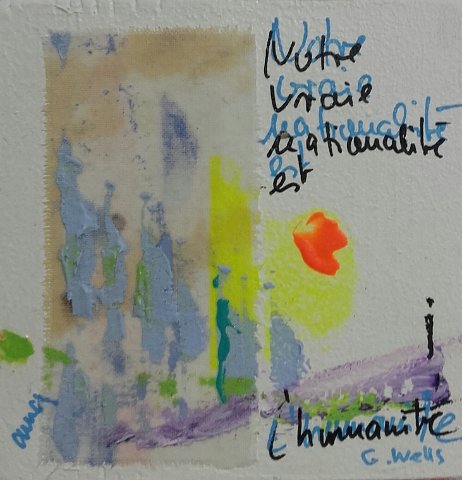 Notre
vraie
nationalité
est
l'humanité
G. Wells